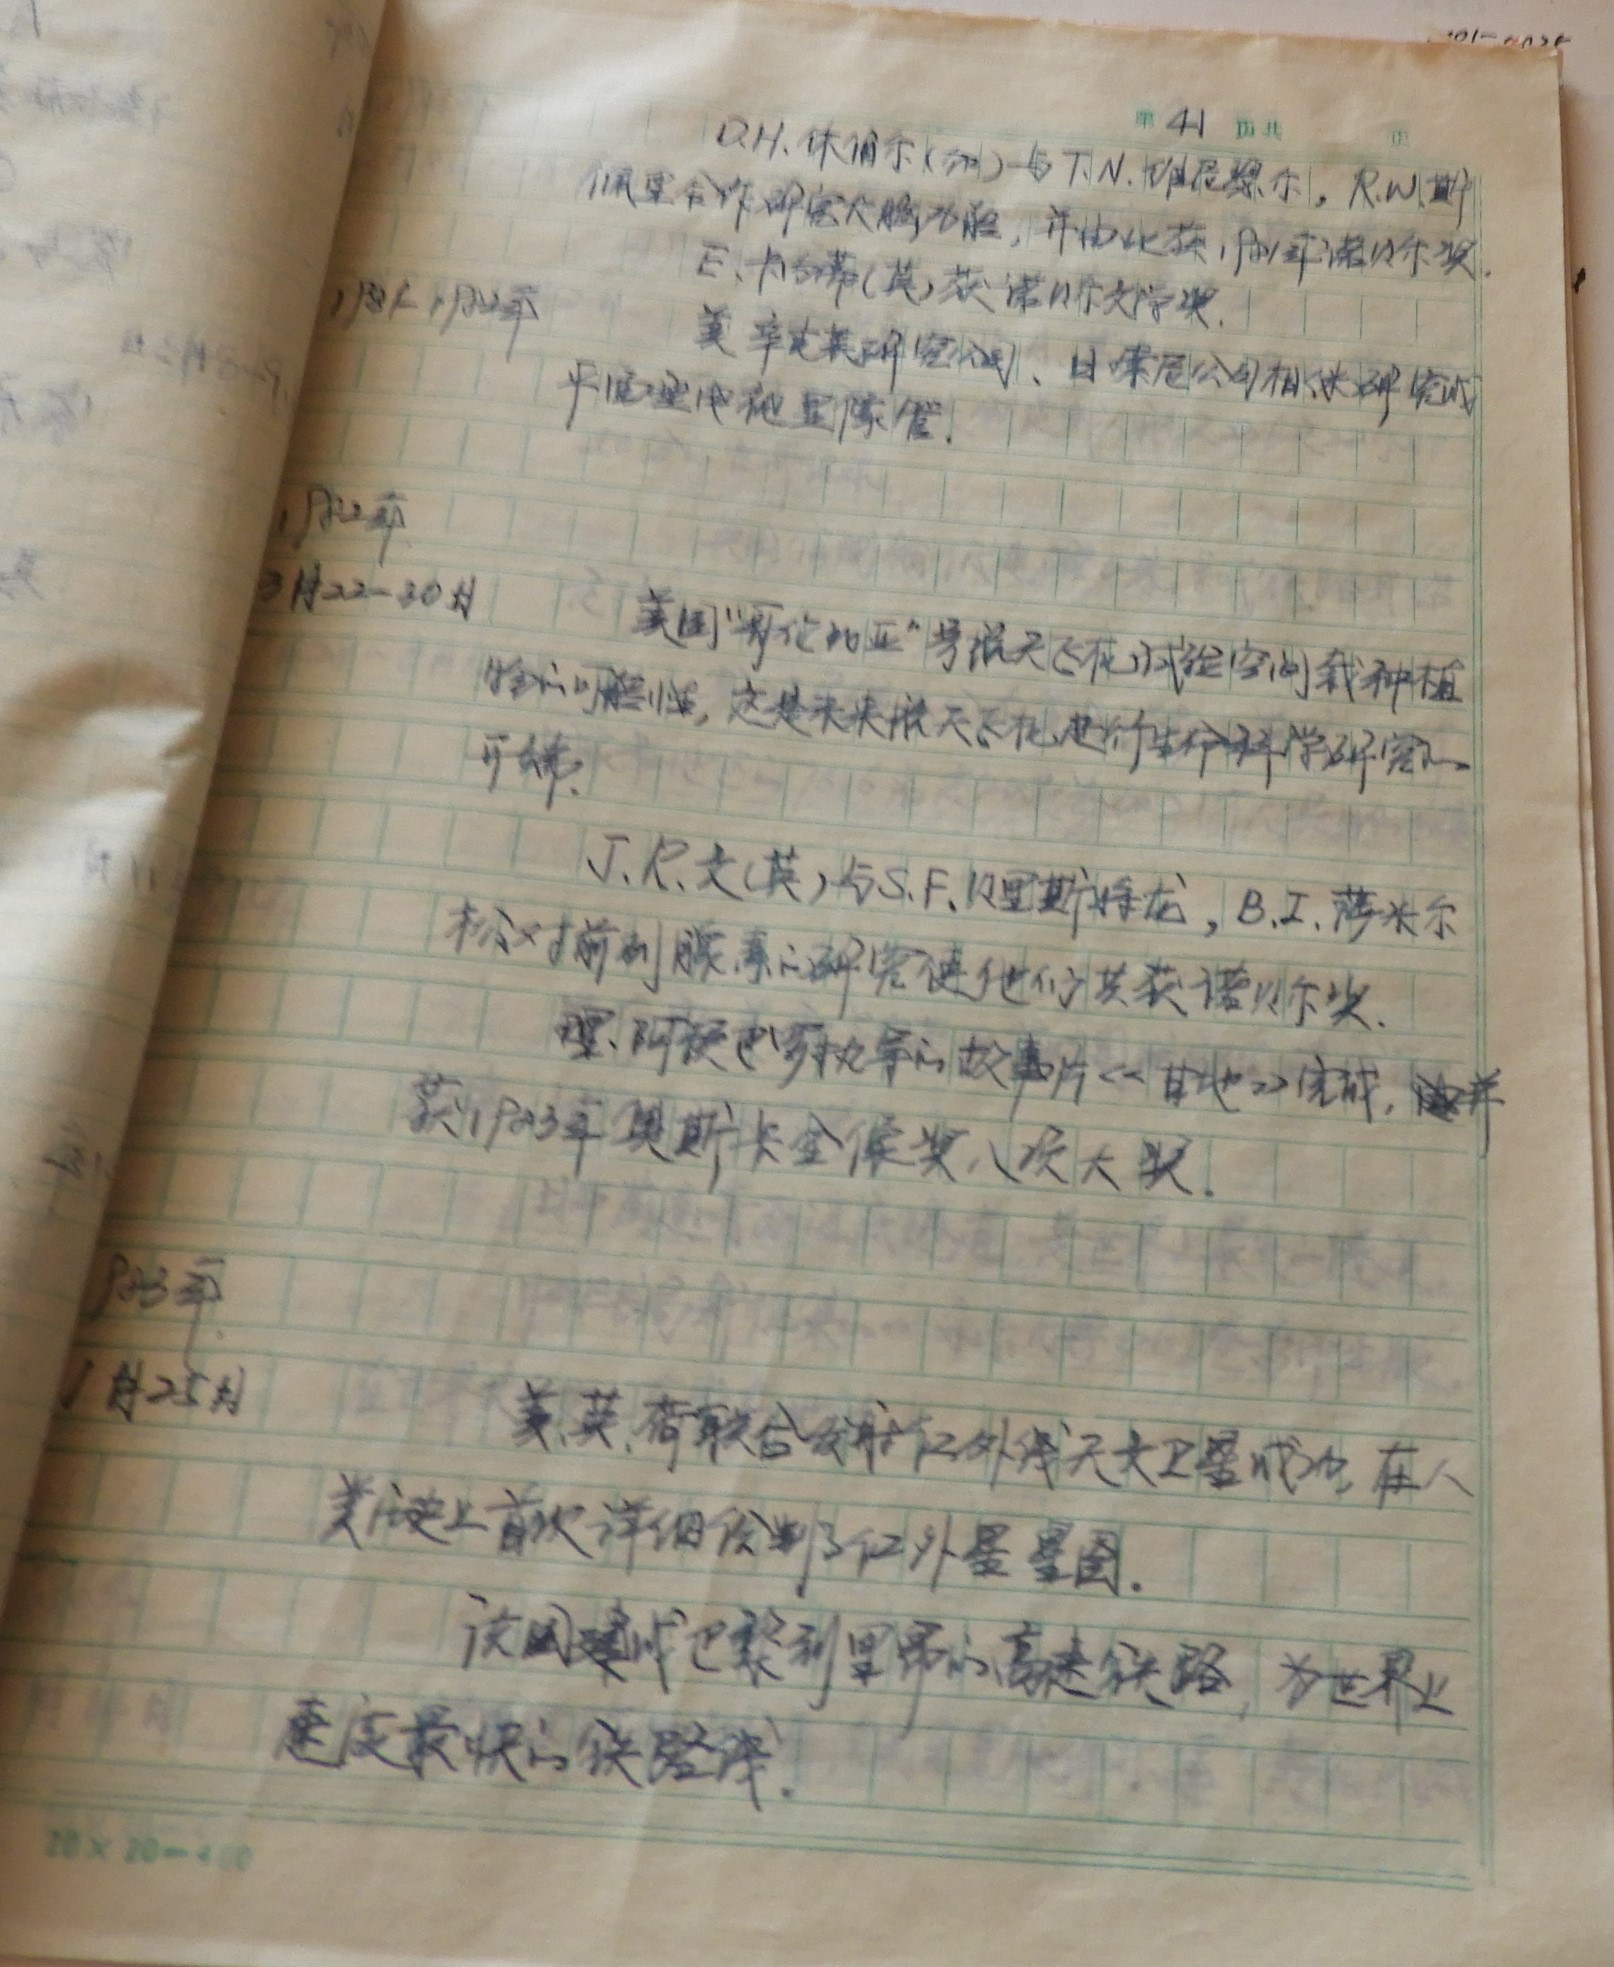 第41页共 页
D.H.休伯尔(加)与T.N.维厄瑟尔,R.W.斯
佩里合作研究大脑功能,并由此获1981年诺贝尔奖.
E.卡内蒂(英)获诺贝尔文学奖.
1981-1982年
美辛克莱研究公司、日索尼公司相继研究成
平面型电视显像管.
1982年
3月22-30日
美国“哥伦比亚”号航天飞机试验空间栽种植
物的可能性,这是未来航天飞机进行生命科学研究的
开端.
J.R.文(英)与S.F.贝里斯特龙,B.I.萨米尔
松对前列腺素的研究使他们共获诺贝尔奖.
理.阿顿巴罗执导的故事片<<甘地>>完成,并
获1983年奥斯卡金像奖八项大奖.
1983年
1月25日
美、英、荷联合发射红外线天文卫星成功,在人
类历史上首次详细绘制了红外星星图.
法国建成巴黎到里昂的高速铁路,为世界上
速度最快的铁路线.
20×20=400